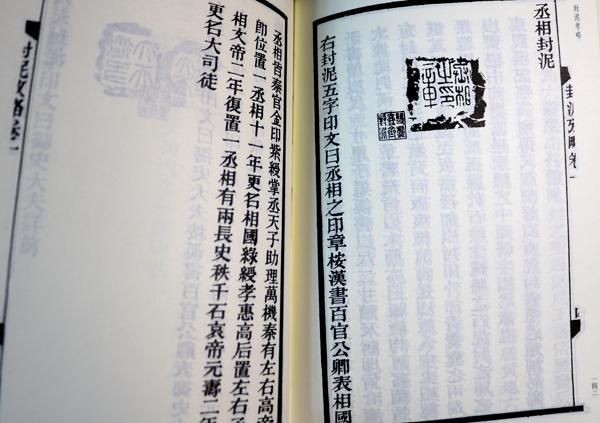 封泥考略
封泥攷略卷一
四
一四二
丞相封泥
丞相之印章
右封泥五字印文曰丞相之印章桉漢書百官公卿表相國
丞相皆秦官金印紫綬掌丞天子助理萬機秦有左右高帝
卽位置一丞相十一年更名相國綠綬孝惠高后置左右丞
相文帝二年復置一丞相有兩長史秩千石哀帝元壽二年
更名大司徒
封泥攷略卷一